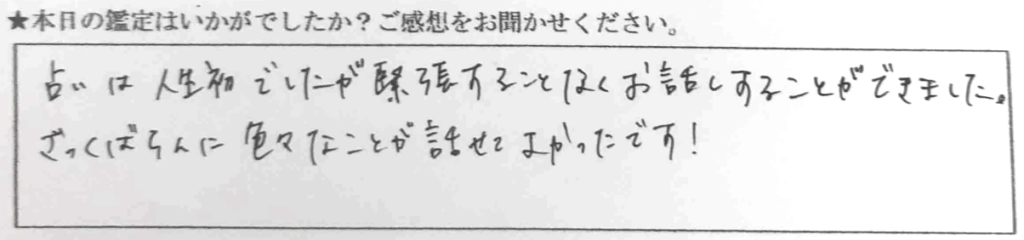 ★本日の鑑定はいかがでしたか？ご感想をお聞かせください。
占いは人生初でしたが緊張することなくお話しすることができました。
ざっくばらんに色々なことが話せてよかったです！